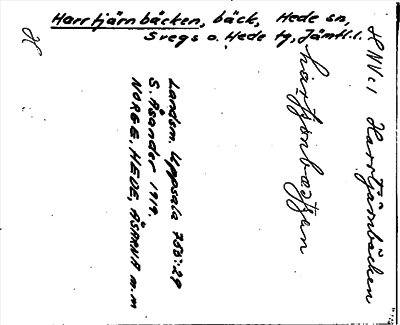 Harrtjärnbäcken, bäck, Hede sn,
Svegs o. Hede tg, Jämtl. l.
HNV:1 Harrtjärnbäcken
hartjønbætjen
Landsm. Uppsala 703:29
S. Åsander 1919.
NORGE. HEDE, ÅSARNA m.m
H